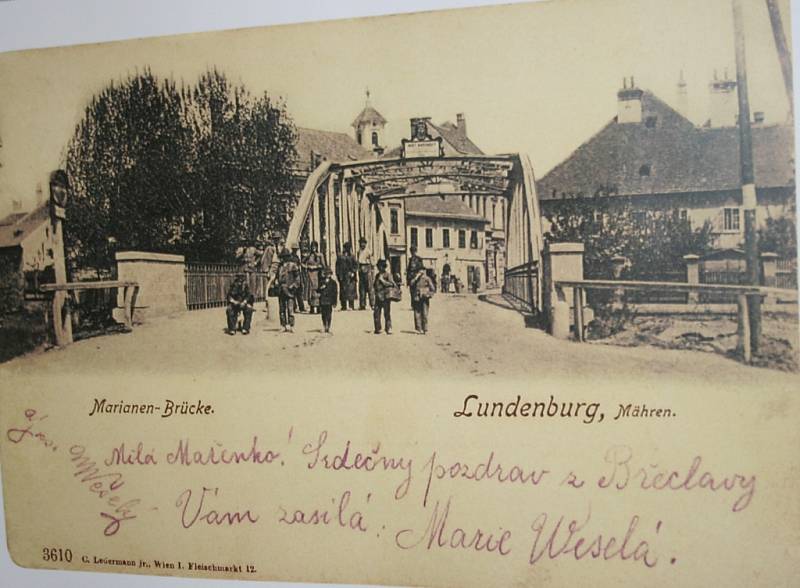 Marianen-Brücke.
Lundenburg, Mähren.
Milá Mařenko! Srdečný pozdrav z Břeclavy
Vám zasílá. Marie Weselá.
MWeselý
3610 C. Ledermann jr., Wien I. Fleischmarkt 12.